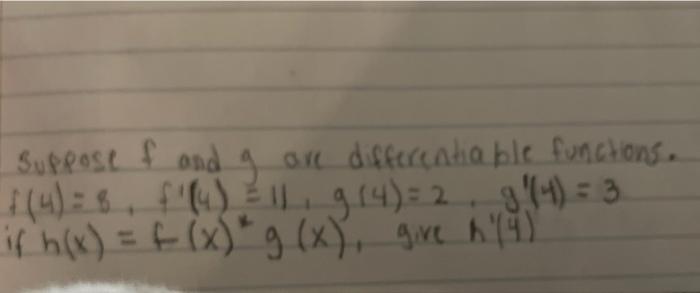 suppose f and g are differentiable functions.
f(4) = 8, f'(4) = 11, g(4) = 2, g'(4) = 3
if h(x) = f(x) * g(x), give h'(4)